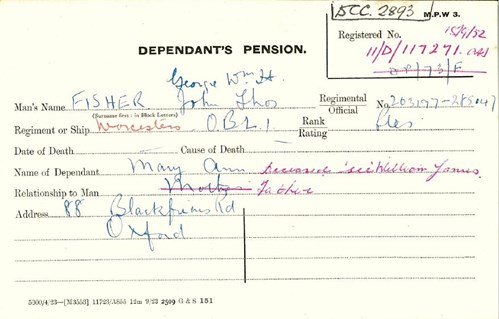 DCC. 2893 M.P.W 3.
Registered No. 15/9/52
11/D/117271.
DP/73/F
DEPENDANT'S PENSION.
George Wm H.
Man's Name FISHER John Thos Regimental Official No 203177-285047
(Surname first: in Block Letters)
Regiment or Ship Worcesters O.B.L.I Rank Rating Ptes
Date of Death Cause of Death
Name of Dependant Mary Ann Deceased William James
Relationship to Man Mother Father
Address 88 Blackfriars Rd
Oxford
5000/4/23—[M3553] 11723/A855 12m 9/23 2509 G & S 151